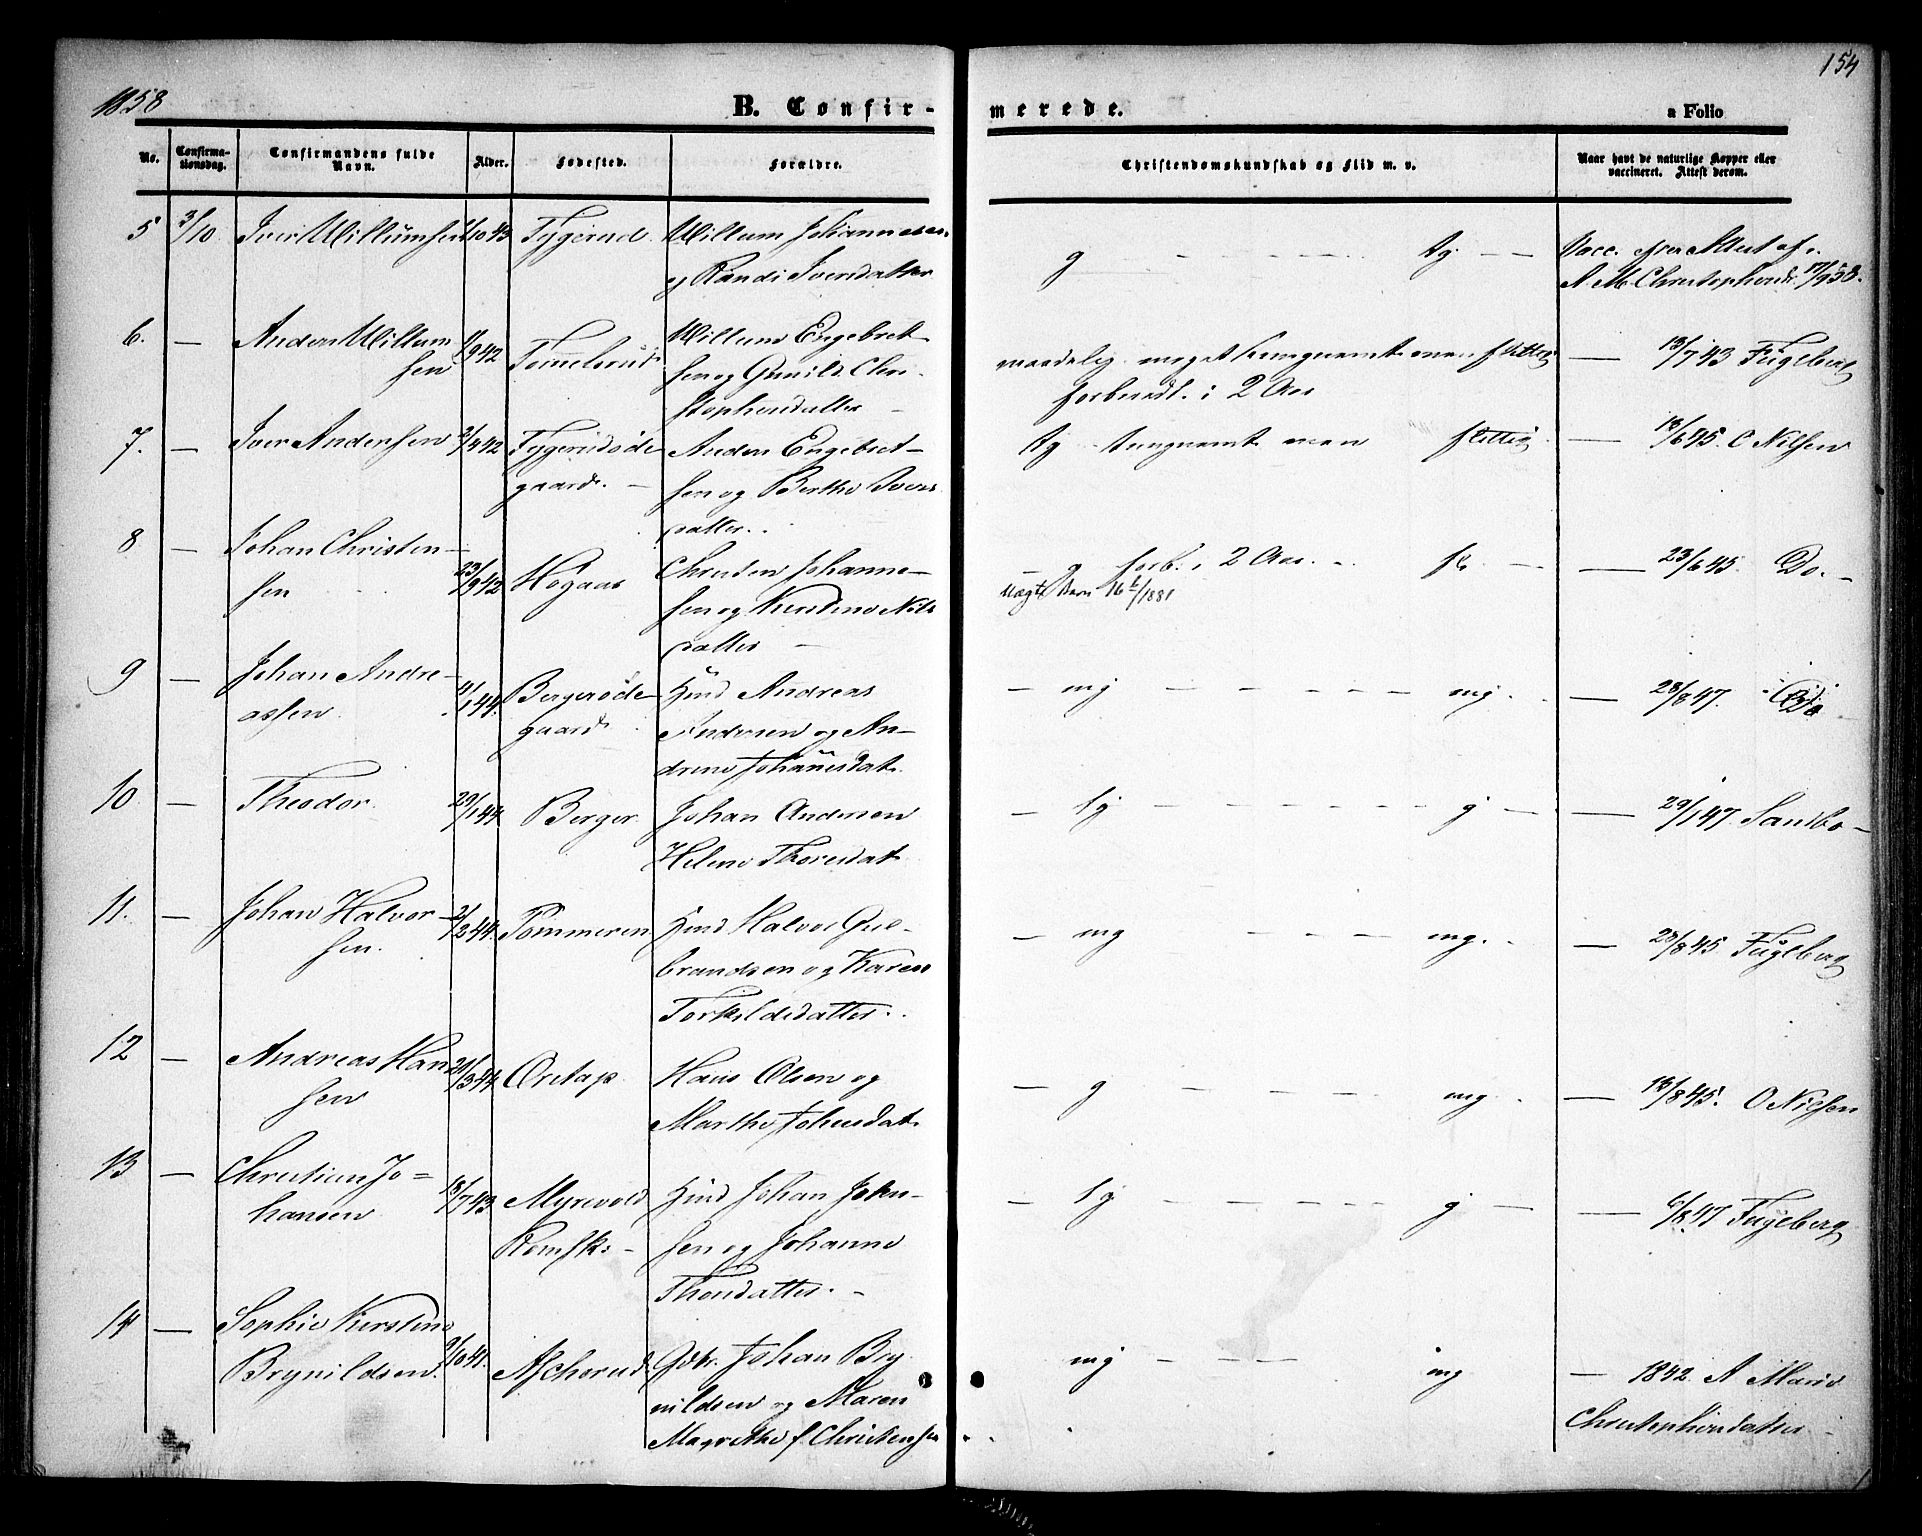 1858
154
B. Confir-
merede.
a Folio
No.
Confirma-
tionsdag.
Confirmandens fulde
Navn.
Alder.
Fødested.
Forældre.
Christendomskundskab og Flid m. v.
Naar havt de naturlige Kopper eller
vaccineret. Attest derom.
5 3/10 Iver Millumsen /10 43 Tygerud Millum Johannesen
og Randi Iversdatter
g - - - - - tg - -
Vacc. efter Attest af
A. M. Christophersd. 17/9 58.
6. - Anders Millum
sen /9 42 Tommelsrud Millum Engebret-
sen og Gunild Chri-
stophersdatter -
maadelig meget tungnemt men flittig
forberedt i 2 Aar
- 13/7 43 Fuglberg
7. - Iver Andersen /4 42 Tygerudøde
gaard. - Anders Engebret-
sen og Berthe Ivers
datter.
tg tungnemt men flittig
- 13/6 45. O Nilsen
8 - Johan Christen-
sen 23/9 42 Høgaas Christen Johanne-
sen og Kirstine Nils
datter -
- g forb. i 2 Aar. - fl. -
16/1881
- 23/6 45. Do. -
9 - Johan Andre-
assen /1 44. Bergerøde
gaard Hmd Andreas
Andersen og An-
drine Johannesdat.
- mg - - - - - mg.
- 28/8 47.
10 - Theodor. 29/1 44 Berger. Johan Andersen
Helene Thoresdat
- tg - - - - - - g -
- 29/1 47 Sandbo -
11. - Johan Halvor-
sen. 2/2 44. Pommeren Hmd Halvor Gul-
brandsen og Karen
Torkildsdatter.
- mg - - - - mg.
- 28/8 45. Fuglberg
12 - Andreas Han
sen 24/3 44. Oretap Hans Olsen og
Marthe Johnsdat
- g - - - - mg
- 13/8 45. O Nilsen
13 - Christian Jo=
hansen 18/7 43 Myrevold
Romsk: - Hmd Johan John-
sen og Johanne
Thorsdatter. -
- tg - - - - - g -
- 6/8 47 Fuglberg
14 - Sophie Kirstine
Brynildsen. 9/10 41. Ascherud Gdbr. Johan Bry
nildsen og Maren
Magrethe f. Christensen
mg - - - mg
- 1842. A Marie
Christophersdatter -